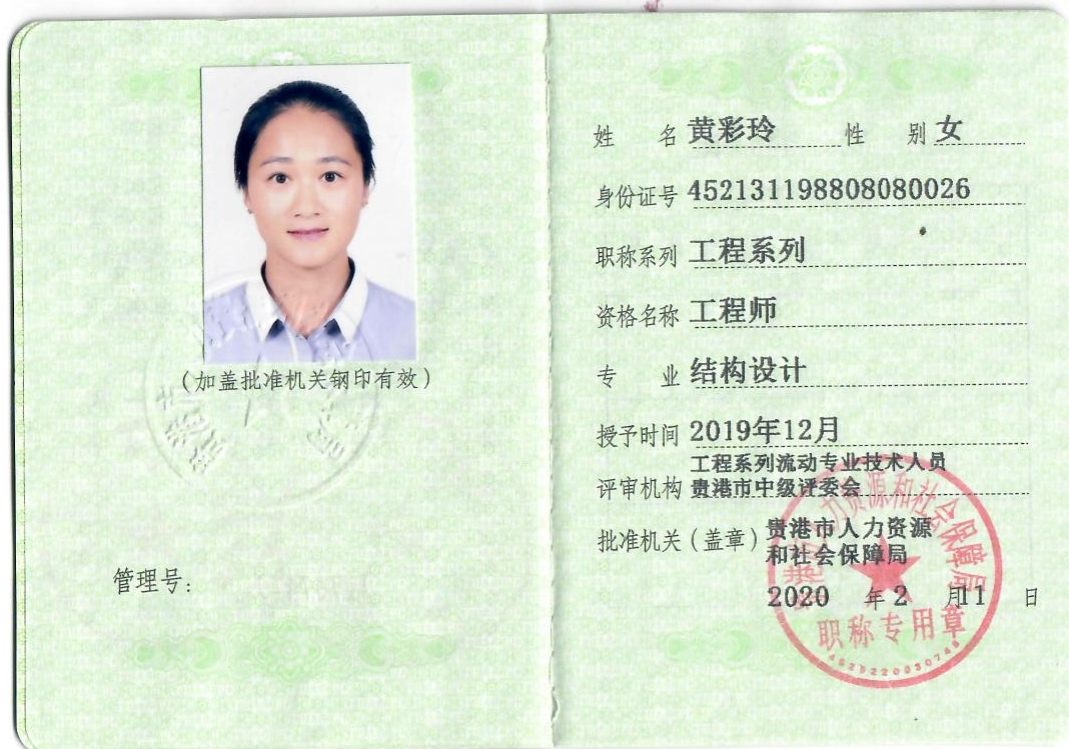 (加盖批准机关钢印有效)
管理号:
姓 名 黄彩玲 性 别 女
身份证号 452131198808080026
职称系列 工程系列
资格名称 工程师
专 业 结构设计
授予时间 2019年12月
工程系列流动专业技术人员
评审机构 贵港市中级评委会
批准机关(盖章) 贵港市人力资源
和社会保障局
2020 年 2 月 11 日
贵港市人力资源和社会保障局
职称专用章